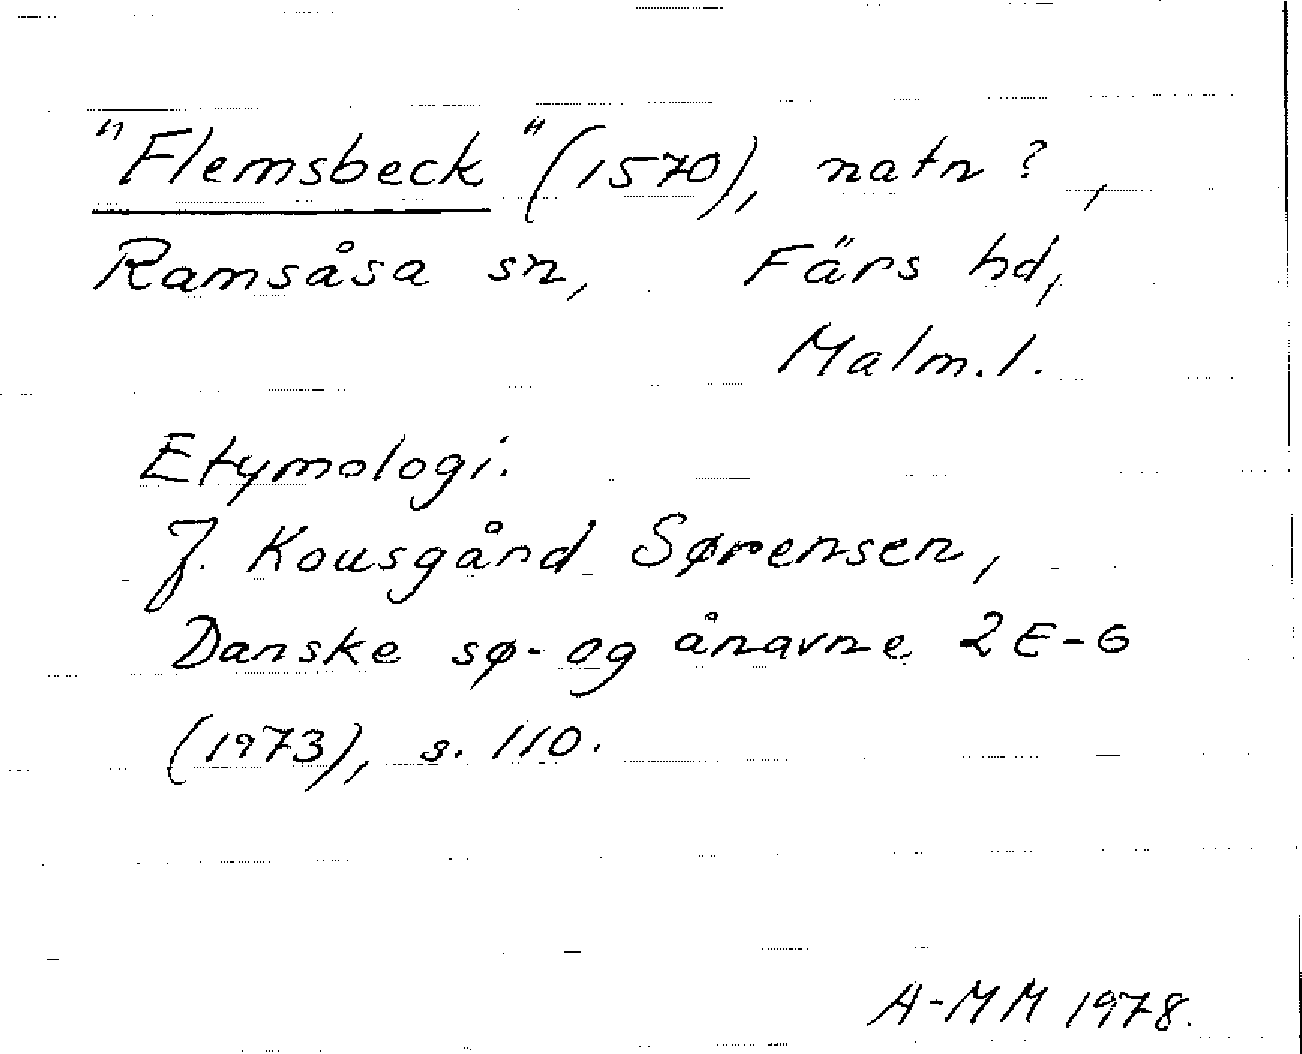 "Flemsbeck" (1570), natn ?,
Ramsåsa sn, Färs hd,
Malm. l.
Etymologi.
J. Kousgård Sørensen,
Danske sø- og ånavne 2 E-G
(1973), s. 110.
A-MM 1978.